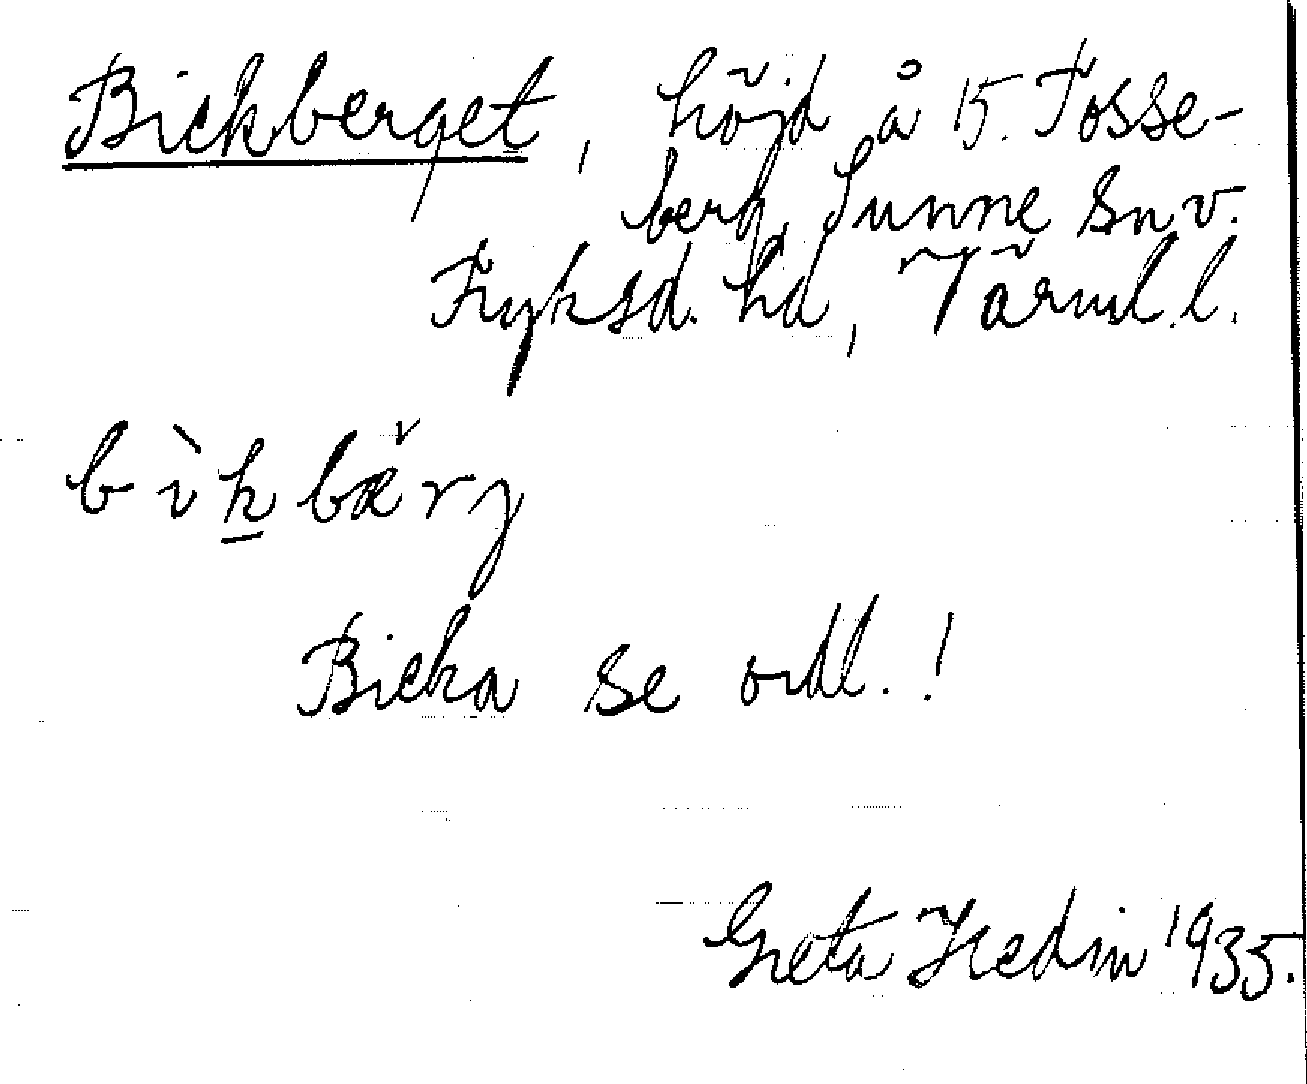 Bickberget, höjd å 15. Tosse-
berg, Sunne sn v.
Fryksd. hd, Värml. l.
b ì k bæ̌ r j
Bicka se ordl.!
Greta Hedin 1935.